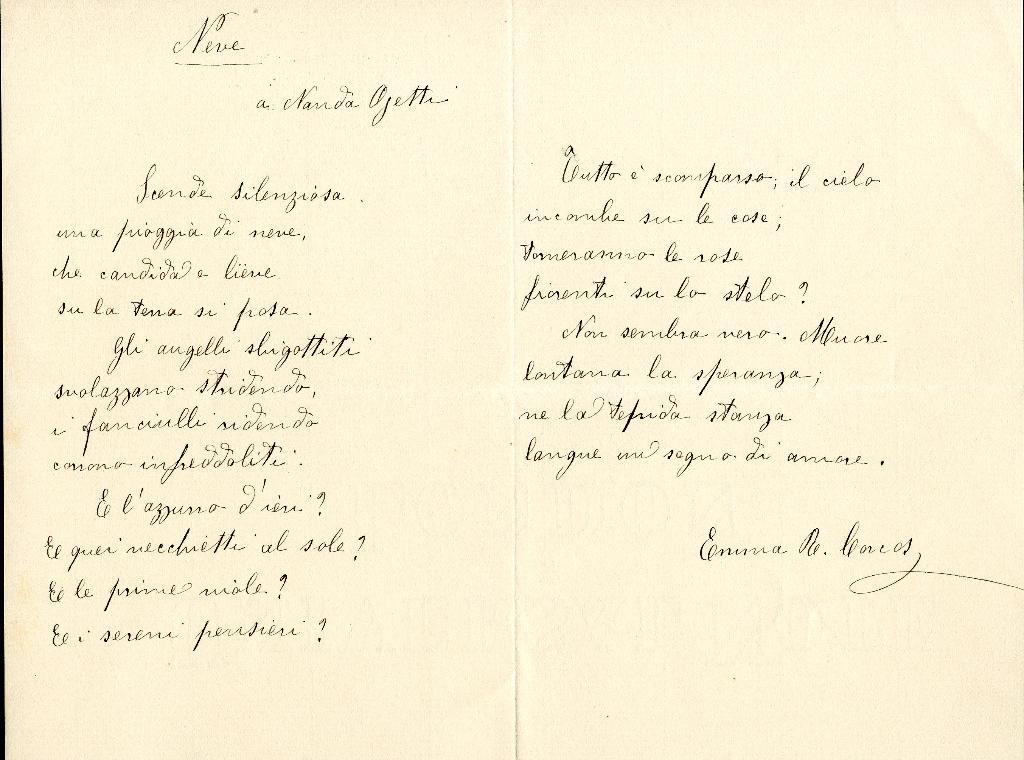 Neve
a Nanda Ojetti
Scende silenziosa
una pioggia di neve,
che candida e lieve
su la terra si posa.
Gli augelli sbigottiti
svolazzano stridendo,
i fanciulli ridendo
corrono infreddoliti.
E l'azzurro d'ieri?
E quei vecchietti al sole?
E le prime viole?
E i sereni pensieri?
Tutto è scomparso; il cielo
incombe su le cose;
torneranno le rose
fiorenti su lo stelo?
Non sembra vero. Muore
lontana la speranza;
ne la tepida stanza
langue un sogno di amore.
Emma R. Corcos